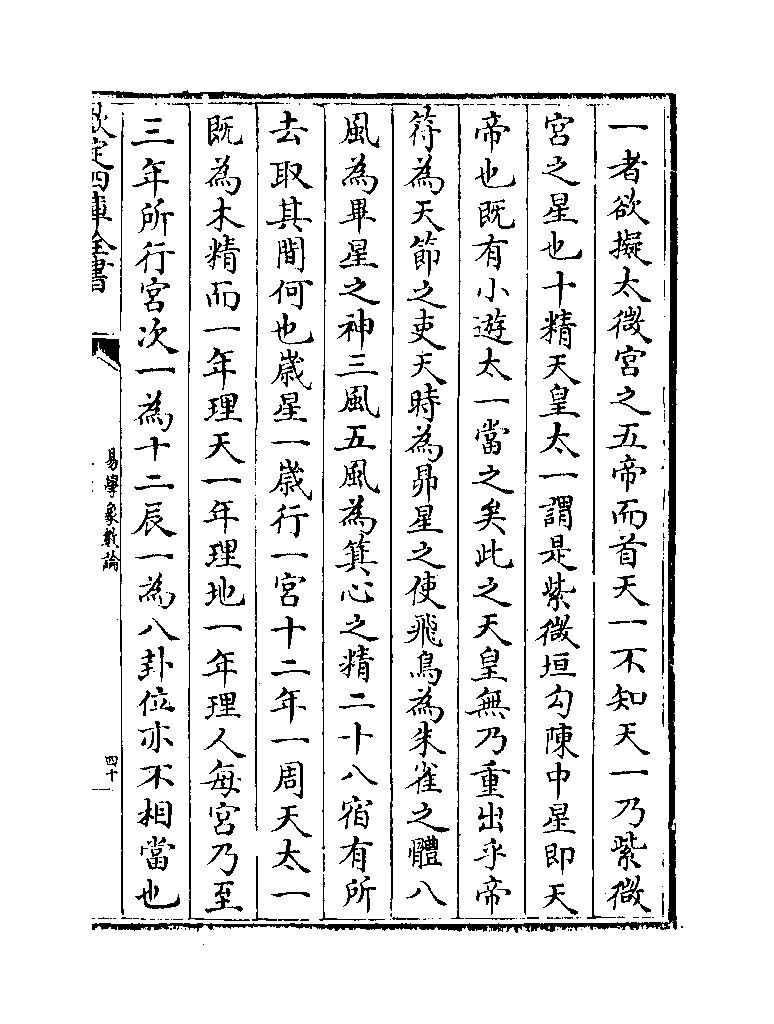 一者欲擬太微宫之五帝而首天一不知天一乃紫微
宫之星也十精天皇太一謂是紫微垣勾陳中星即天
帝也既有小遊太一當之矣此之天皇無乃重出乎帝
符為天節之吏天時為昴星之使飛鳥為朱雀之體八
風為畢星之神三風五風為箕心之精二十八宿有所
去取其間何也嵗星一嵗行一宫十二年一周天太一
既為木精而一年理天一年理地一年理人每宫乃至
三年所行宫次一為十二辰一為八卦位亦不相當也
欽定四庫全書
易學象數論
四十